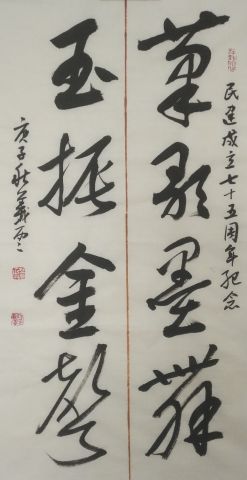 民建成立七十五周年紀念
筆歌墨舞
玉振金聲
庚子秋